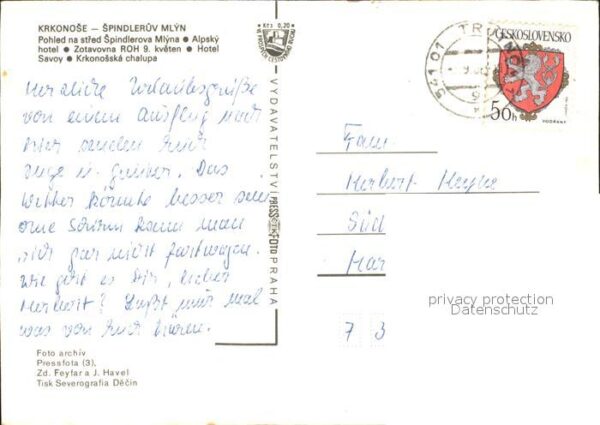 KRKONOŠE – ŠPINDLERŮV MLÝN
Pohled na střed Špindlerova Mlýna ● Alpský
hotel ● Zotavovna ROH 9. květen ● Hotel
Savoy ● Krkonošská chalupa
Kčs 0,20
Herzliche Urlaubsgrüße
von einem Ausflug nach
hier senden Euch
Inge u. Günter. Das
Wetter könnte besser sein
ohne Schirm kann man
sich gar nicht fortwagen.
Wie geht es Dir, lieber
Herbert? Laßt mal
was von Euch hören.
VYDAVATELSTVÍ PRESSFOTO PRAHA
541 01 TRUTNOV
ČESKOSLOVENSKO
56h
VODŇANY
Fam.
Herbert
Süd
Har
7 3
privacy protection
Datenschutz
Foto archív
Pressfota (3),
Zd. Feyfar a J. Havel
Tisk Severografia Děčín